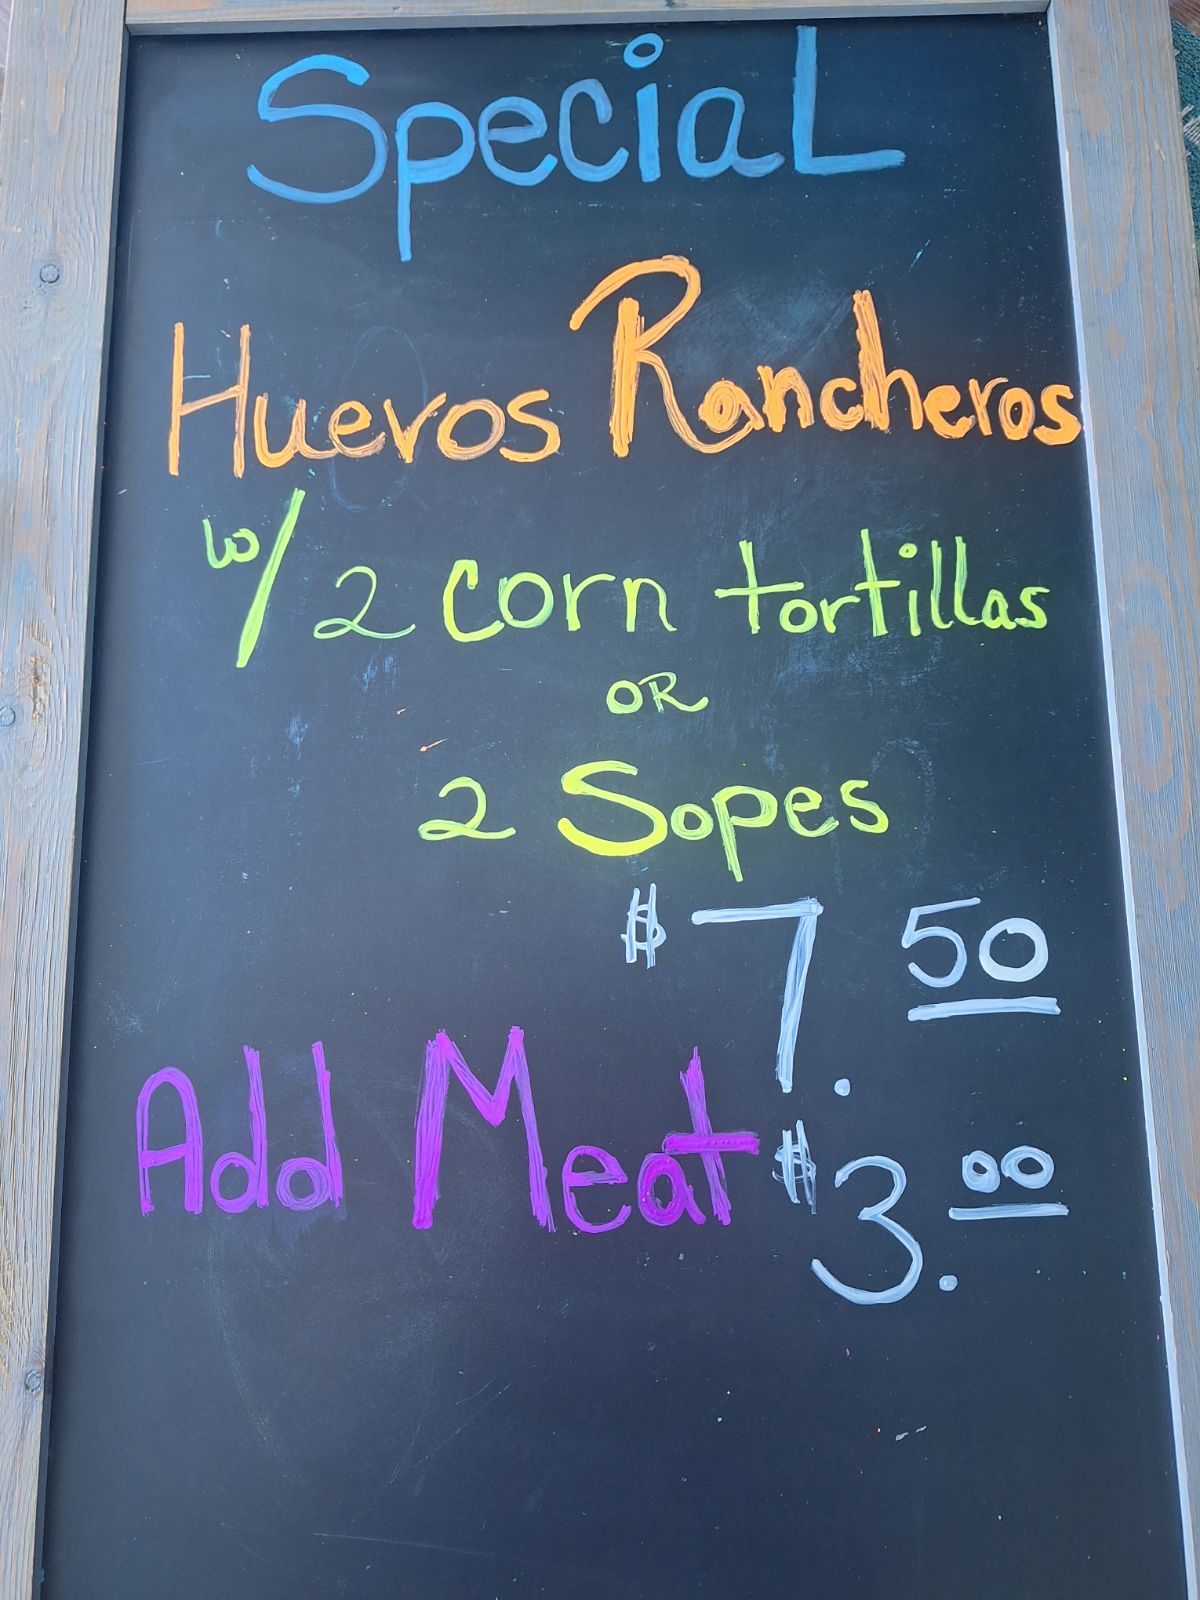 Special
Huevos Rancheros
w/ 2 corn tortillas
OR
2 Sopes
$7.50
Add Meat $3.00